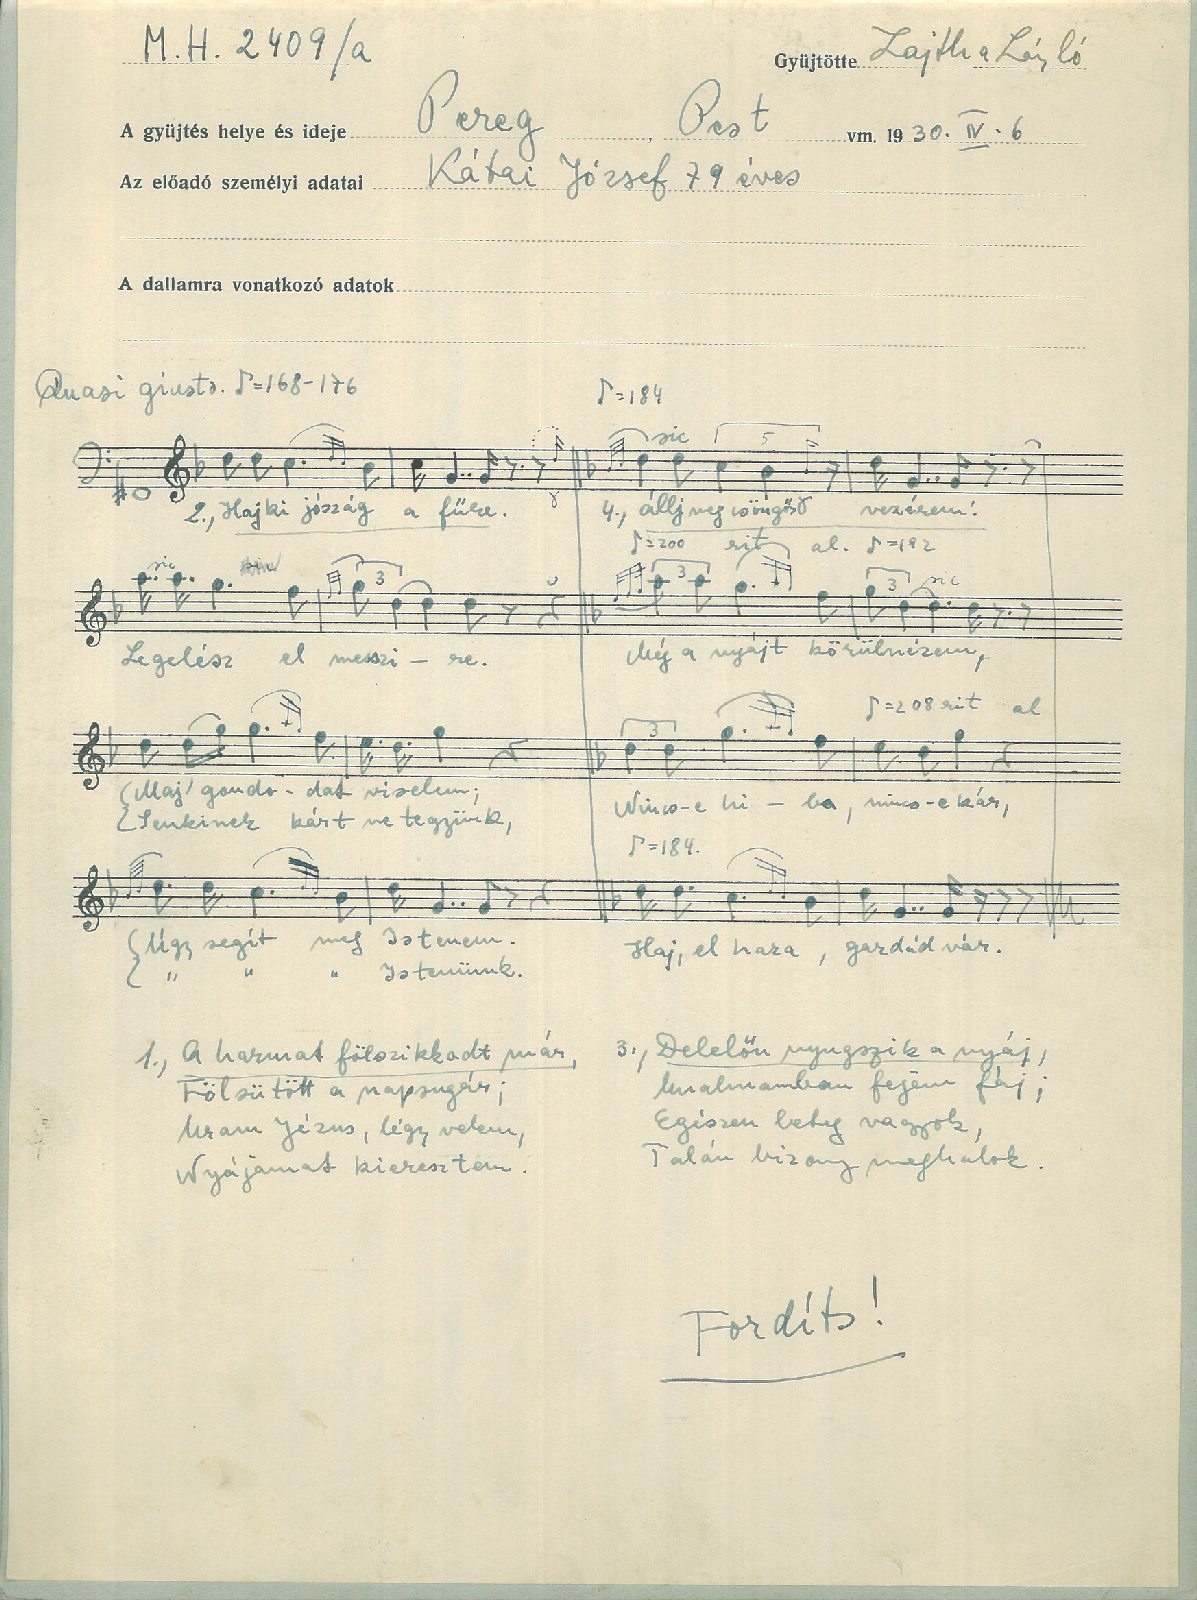 M.H. 2409/a
Gyüjtötte Lajtha László
A gyüjtés helye és ideje Pereg, Pest vm. 1930. IV. 6
Az előadó személyi adatai Kátai József 79 éves
A dallamra vonatkozó adatok
Quasi giusto. ♪=168-176 ♪=184
sic 5
2., Hajki jószág a fűre. 4., állj meg vezérem!
♪=200 rit al. ♪=192
sic 3 3 3 sic
Legelész el messzi - re. Még a nyájt körülnézem,
♪=208 rit al
3
Maj' gondo - dat viselem; Nincs-e hi - ba, nincs-e kár,
Senkinek kárt ne tegyünk,
♪=184.
Úgy segít meg Istenem. Haj, el haza, gardád vár.
" " " Istenünk.
1., A harmat fölszikkadt már,
Fölsütött a napsugár;
Uram Jézus, légy velem,
Nyájamat kieresztem.
3., Delelőn nyugszik a nyáj,
Unalmamban fejem fáj;
Egészen beteg vagyok,
Talán bizony meghalok.
Fordíts!